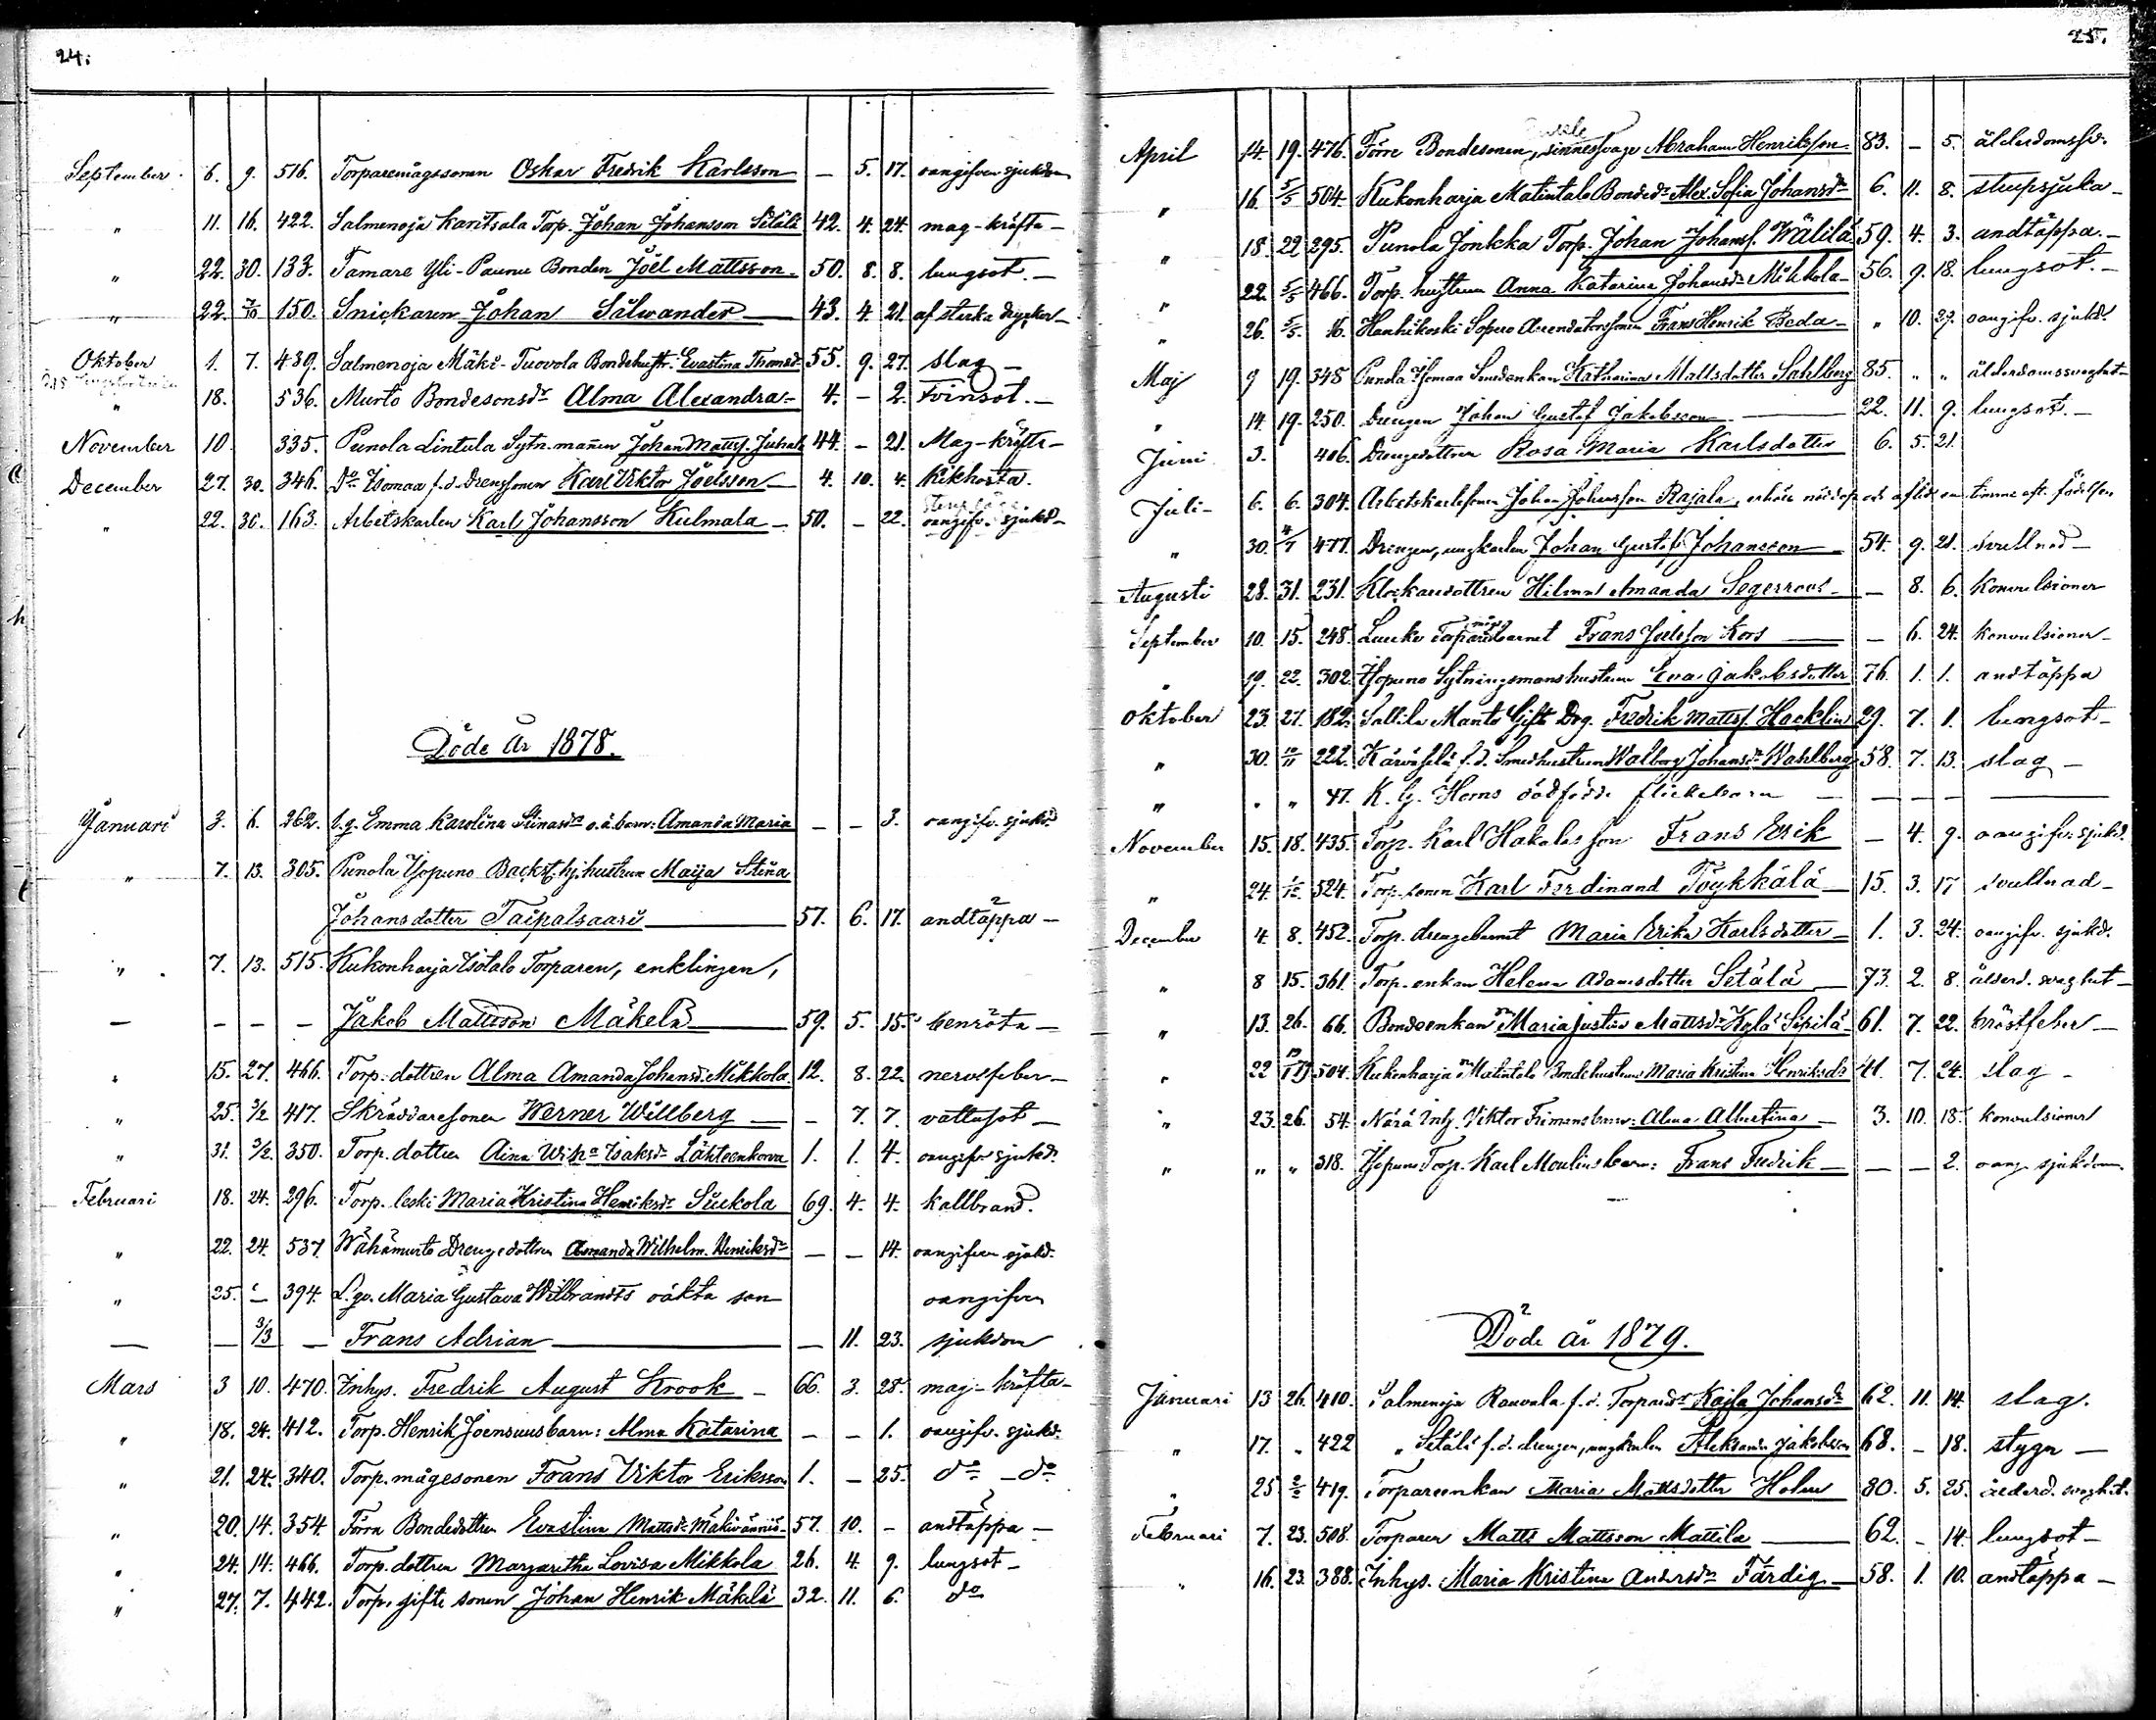 24.
September 6. 9. 516. Torparemågssonen Oskar Fredrik Karlsson — 5. 17. oangifven sjukdom
" 11. 16. 422. Salmenoja Karitsala Torp. Johan Johansson Setälä 42. 4. 24. mag-kräfta —
" 22. 30. 133. Tamare Yli-Paunu Bonden Joel Mattsson — 50. 8. 8. lungsot. —
" 22. 7/10 150. Snickaren Johan Salwander — 43. 4. 21. af starka drycker —
Oktober 1. 7. 439. Salmenoja Mäki-Tuovola Bondehustr. Evastina Thomasdr 55. 9. 27. slag —
" 18. 536. Murto Bondesonsdr Alma Alexandra — 4. — 2. Tvinsot. —
November 10. 335. Punola Lintula Sytn. mannen Johan Mattsf. Juhala 44. — 21. Mag-kräfta —
December 27. 30. 346. Do Isomaa f.d. Drengsonen Karl Viktor Joelsson — 4. 10. 4. Kikhosta.
" 22. 30. 163. Arbetskarlen Karl Johansson Kulmala — 50. — 22. oangifv. sjukd —
Döde år 1878.
Januari 3. 6. 262. l.q. Emma Karolina Stinasdr o.ä. barn: Amanda Maria — — 3. oangifv. sjukd.
" 7. 13. 305. Punola Isopuno Backst.hj. hustrun Maija Stina
Johansdotter Taipalsaari — 57. 6. 17. andtäppa —
" 7. 13. 515. Kukonharja Isotalo Torparen, enklingen,
— — — — Jakob Mattsson Mäkelä — 59. 5. 15. benröta —
" 15. 27. 466. Torp. dottren Alma Amanda Johansdr Mikkola 12. 8. 22. nervfeber —
" 25. 3/2 417. Skräddaresonen Werner Willberg — — 7. 7. vattusot —
" 31. 3/2. 350. Torp. dottren Aina Wilh:a Isaksdr Lähteenkorva 1. 1. 4. oangifv sjukd.
Februari 18. 24. 296. Torp. leski Maria Kristina Henriksdr Suckola 69. 4. 4. kallbrand.
" 22. 24. 537. Wähämurto Drengedottren Amanda Wilhelm. Henriksdr — — 14. oangifven sjukd.
" 25. — 394. L.qv. Maria Gustava Wilbrandts oäkta son oangifven
— — 3/3 — Frans Adrian — — 11. 23. sjukdom
Mars 3 10. 470. Inhys. Fredrik August Krook — 66. 3. 28. mag-kräfta —
" 18. 24. 412. Torp. Henrik Joensuus barn: Alma Katarina — — 1. oangifv. sjukd.
" 21. 24. 340. Torp. mågesonen Frans Viktor Eriksson 1. — 25. do — do
" 20. 14. 354. Förra Bondedottren Evastina Mattsdr 57. 10. — andtäppa —
" 24. 14. 466. Torp. dottren Margaretha Lovisa Mikkola 26. 4. 9. lungsot —
" 27. 7. 442. Torp. gifte sonen Johan Henrik Mäkelä 32. 11. 6. do
25.
April 14. 19. 476. Förre Bondesonen, sinnessvage Abraham Henriksson 83. — 5. ålderdomssv.
" 16. 5/5 504. Kukonharja Matintalo Bondedr Alex. Sofia Johansdr 6. 11. 8. strupsjuka —
" 18. 22 295. Punola Jonkka Torp. Johan Johansf. Wälilä 59. 4. 3. andtäppa. —
" 22. 5/5 466. Torp. hustrun Anna Katarina Johansdr Mikkola — 56. 9. 18. lungsot. —
" 26. 5/5. 16. Hanhikoski Sopero Arendatorssonen Frans Henrik Beda — " 10. 29. oangifv. sjukd.
Maj 9 19. 348 Punola Isomaa Smedenkan Katharina Mattsdotter Sahlberg 85. " " ålderdomssvaghet —
" 14. 19. 250. Drengen Johan Gustaf Jakobsson — 22. 11. 9. lungsot. —
Juni 3. 406. Drengedottren Rosa Maria Karlsdotter 6. 5. 21.
Juli — 6. 6. 304. Arbetskarlssonen Johan Johansson Rajala, erhöll nöddop och afled en timme eft. födelsen
" 30. 4/7 477. Drengen, ungkarlen Johan Gustaf Johansson — 54. 9. 21. svullnad —
Augusti 28. 31. 231. Klockaredottren Hilma Amanda Segerroos — — 8. 6. konvulsioner
September 10. 15. 248. Torparebarnet Frans Joelsson Koos — — 6. 24. konvulsioner —
" 19. 22. 302. Isopuno Sytningsmanshustrun Eva Jakobsdotter 76. 1. 1. andtäppa
Oktober 23. 27. 182. Sallila Manto Gift Drg. Fredrik Mattsf. Hacklin 29. 7. 1. lungsot —
" 30. 10/11 222. f.d. Smedhustrun Walborg Johansdr Wahlberg 58. 7. 13. slag —
" " " 47. K. G. Horns dödfödde flickebarn — — — —
November 15. 18. 435. Torp. Karl Hakalas son Frans Erik — 4. 9. oangifv. sjukd.
" 24. 1/12 524. Torp. sonen Karl Ferdinand Töykkälä — 15. 3. 17 svullnad —
December 4. 8. 452. Torp. drengebarnet Maria Erika Karlsdotter — 1. 3. 24. oangifv. sjukd.
" 8 15. 361. Torp. enkan Helena Adamsdotter Setälä — 73. 2. 8. ålderd. svaghet —
" 13. 26. 66. Bondeenkan Maria Justina Mattsdr Kylä-Sipilä — 61. 7. 22. bröstfeber —
" 22 504. Kukonharja Matintalo Bondehustrun Maria Kristina Henriksdr 41. 7. 24. slag —
" 23. 26. 54. Närä Inh. Viktor Frimans barn: Alma Albertina — 3. 10. 18. konvulsioner
" " " 318. Isopuno Torp. Karl Moulins barn: Frans Fredrik — — — 2. oang. sjukdom.
Döde år 1879.
Januari 13 26. 410. Salmenoja Rauvala f.d. Torparedr Kajsa Johansdr 62. 11. 14. slag.
" 17. " 422 " Setälä f.d. drengen, ungkarlen Aleksander Jakobsson 68. — 18. stygn —
" 25 2/2 419. Torpareenkan Maria Mattsdotter Holm 80. 5. 25. ålderd. svaghet.
Februari 7. 23. 508. Torparen Matts Mattsson Mattila — 62. — 14. lungsot —
" 16. 23. 388. Inhys. Maria Kristina Andersdr Färdig — 58. 1. 10. andtäppa —